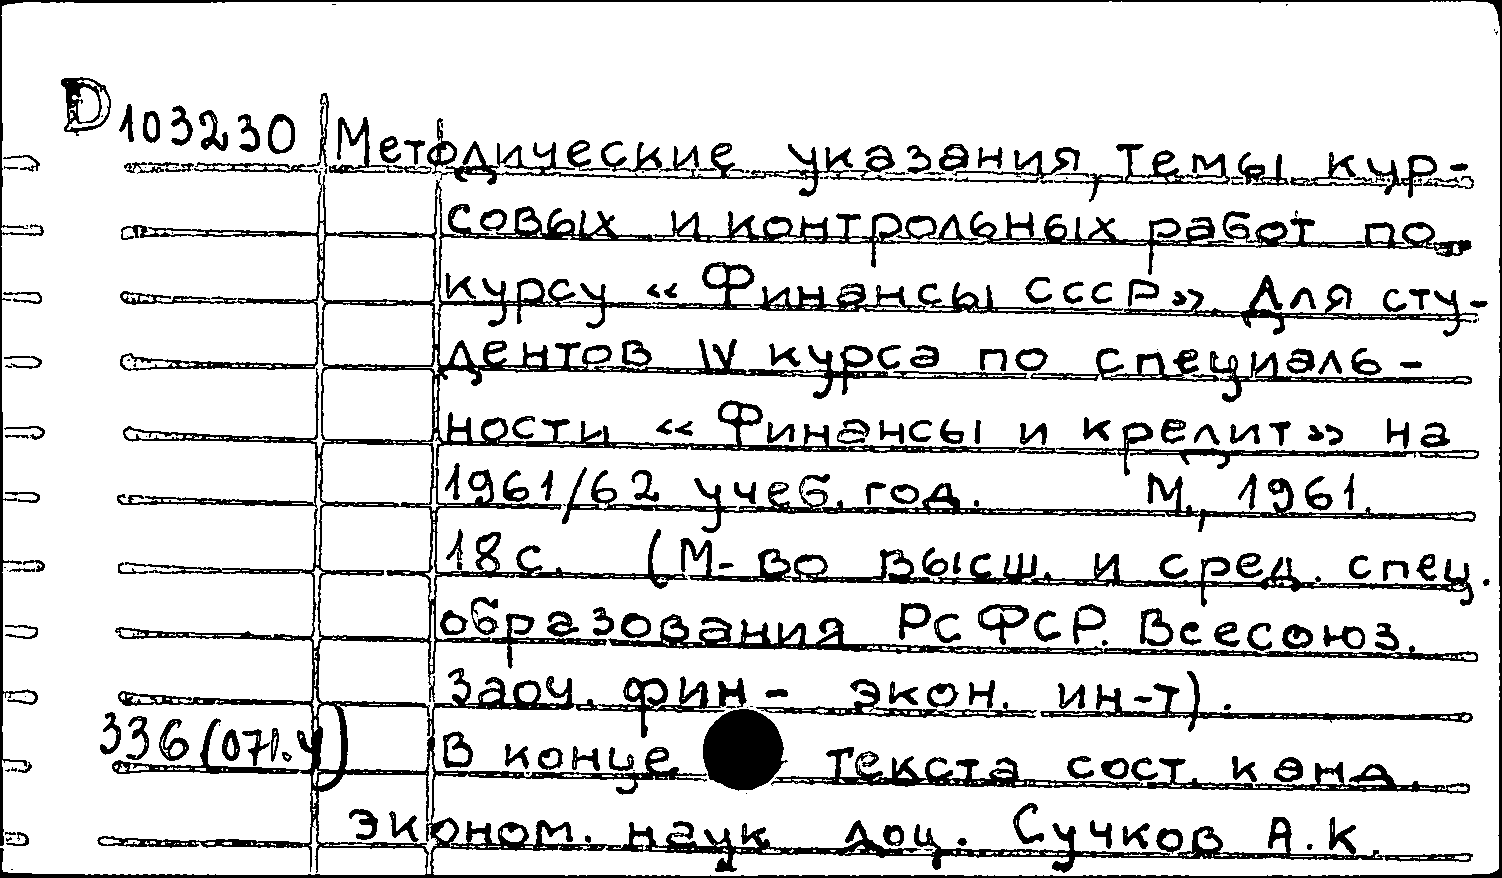 D 103230 Методические указания, темы кур-
совых и контрольных работ по
курсу «Финансы СССР». Для сту-
дентов IV курса по специаль-
ности «Финансы и кредит» на
1961/62 учеб. год. М., 1961.
18 с. (М-во высш. и сред. спец.
образования РСФСР. Всесоюз.
Заоч. фин-экон. ин-т).
336(071.4) В конце текста сост. канд.
эконом. наук доц. Сучков А.К.